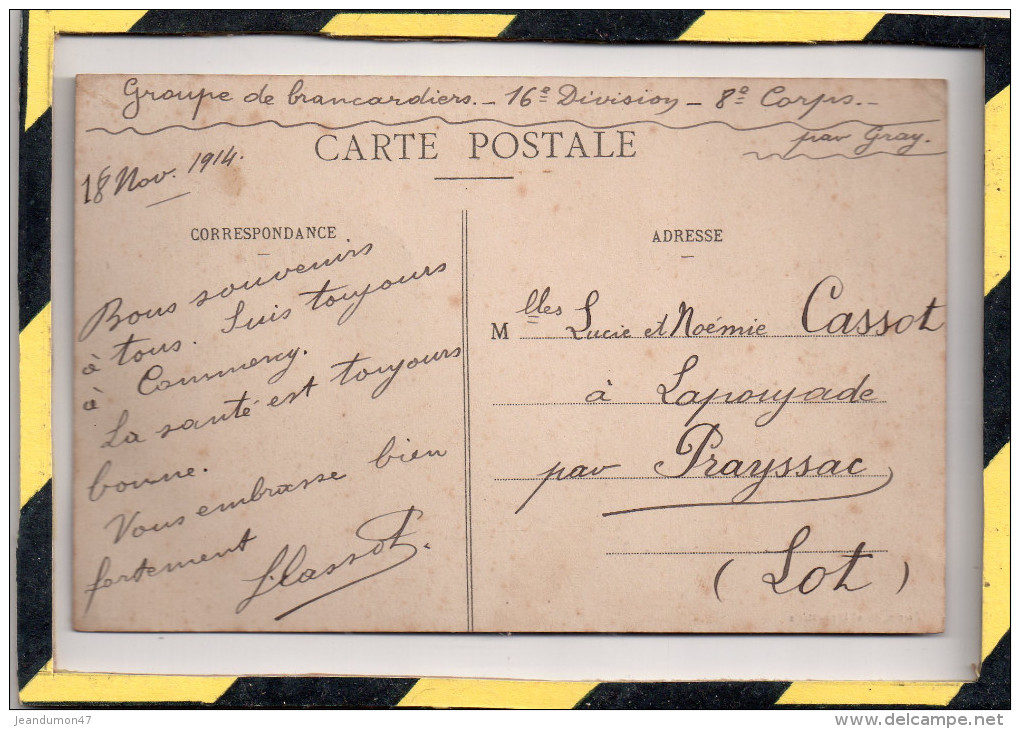 Groupe de brancardiers. – 16e Division – 8e Corps. –
par Gray.
CARTE POSTALE
18 Nov. 1914.
CORRESPONDANCE
Bons souvenirs
à tous. Suis toujours
à Commercy.
La santé est toujours
bonne.
Vous embrasse bien
fortement
Cassot.
ADRESSE
Mlles Lucie et Noémie Cassot
à Lapoujade
par Prayssac
(Lot)
jeandumon47
www.delcampe.net